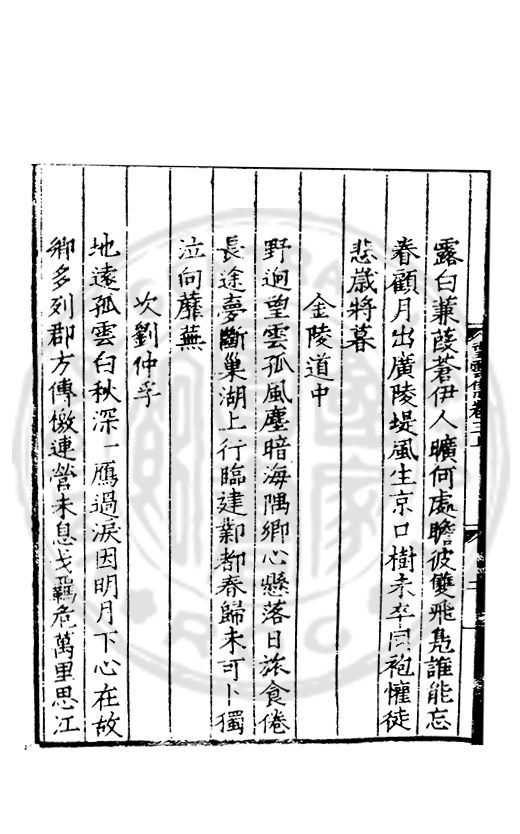 露白蒹葭蒼伊人曠何處瞻彼雙飛鳧誰能忘
眷顧月出廣陵堤風生京口樹未卒同袍懽徒
悲歲將暮
金陵道中
野迥望雲孤風塵暗海隅鄉心懸落日旅食倦
長途夢斷巢湖上行臨建鄴都春歸未可卜獨
泣向蘼蕪
次劉仲孚
地遠孤雲白秋深一鴈過淚因明月下心在故
鄉多列郡方傳檄連營未息戈羈危萬里思江